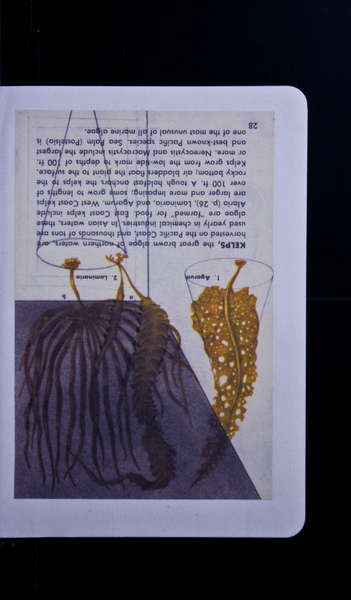 KELPS, the great brown algae of northern waters, are
harvested on the Pacific Coast, and thousands of tons are
used yearly in chemical industries. In Asian waters, these
algae are "farmed" for food. East Coast kelps include
Alaria (p. 26), Laminaria, and Agarum. West Coast kelps
are larger and more imposing; some grow to lengths of
over 100 ft. A tough holdfast anchors the kelps to the
rocky bottom; air bladders float the plant to the surface.
Kelps grow from the low-tide mark to depths of 100 ft.
or more. Nereocystis and Macrocystis include the largest
and best-known Pacific species. Sea Palm (Postelsia) is
one of the most unusual of all marine algae.
28
1. Agarum
2. Laminaria
a
b